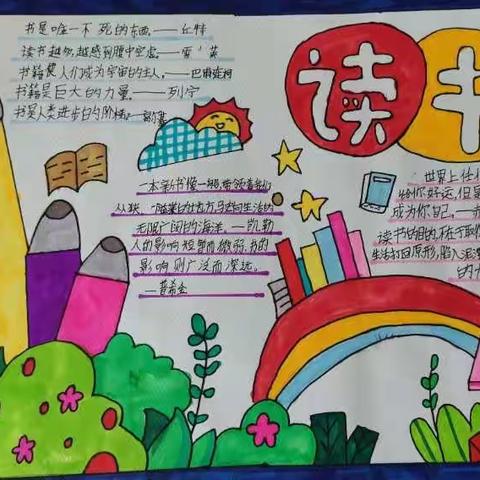 读书
书是唯一不死的东西。——丘特
读书越多,越感到腹中空虚。——雪莱
书籍使人们成为宇宙的主人。——巴甫连柯
书籍是巨大的力量。——列宁
书是人类进步的阶梯。——高尔基
一本新书像一艘船,带领着我们
从狭
生活的
无限广阔的海洋。——凯勒
人的影响短暂而微弱,书的
影响则广泛而深远。
——普希金
世界上任何
给你好运,但是
成为你自己。
读书的目的,在于取
生活打回原形,陷入泥
的力